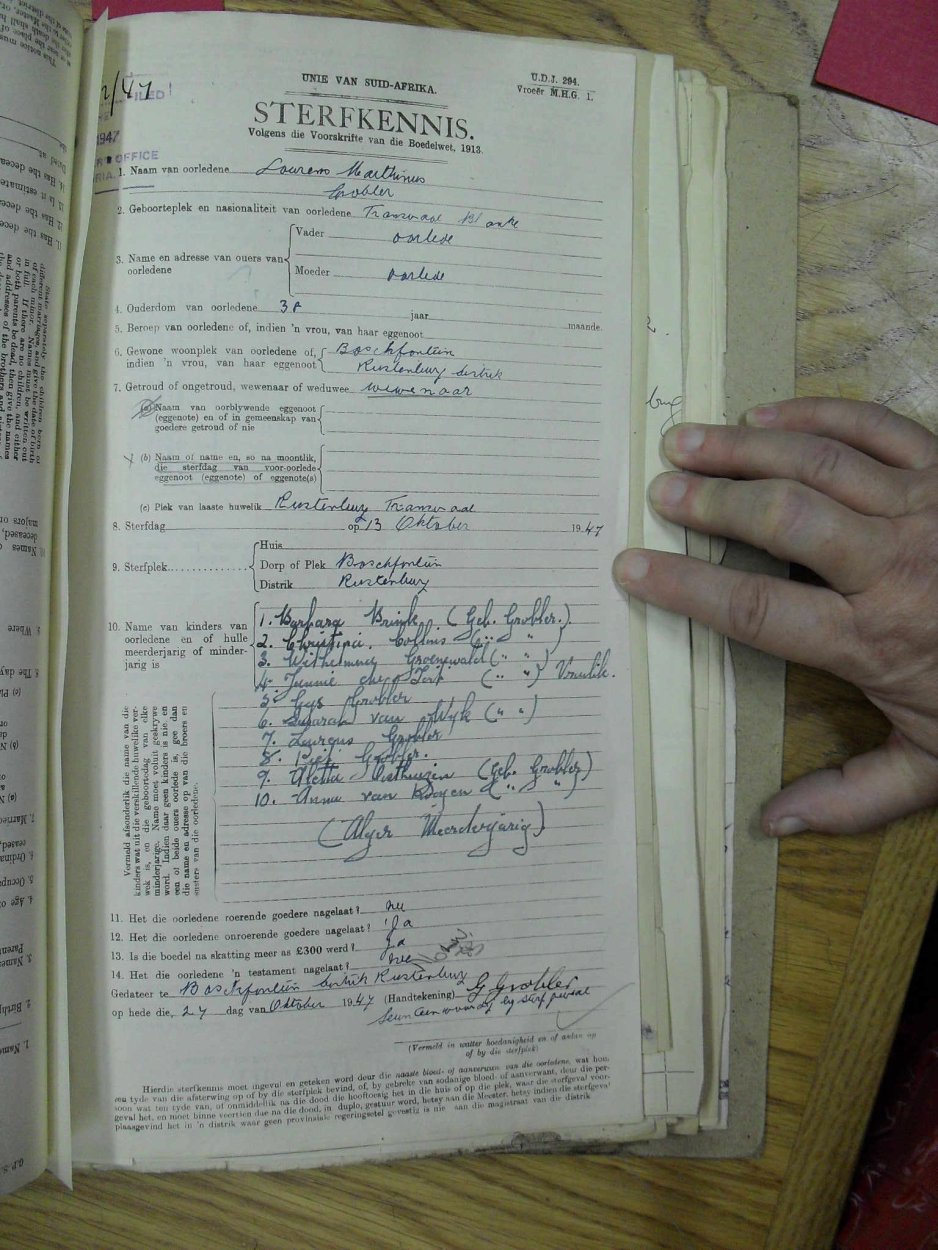 UNIE VAN SUID-AFRIKA.
U.D.J. 294.
Vroeër M.H.G. 1.
/47
FILED
1947
OFFICE
STERFKENNIS.
Volgens die Voorskrifte van die Boedelwet, 1913.
1. Naam van oorledene Lourens Marthinus
Grobler
2. Geboorteplek en nasionaliteit van oorledene Transvaal Blanke
3. Name en adresse van ouers van oorledene
Vader oorlede
Moeder oorlede
4. Ouderdom van oorledene 38 jaar maande.
5. Beroep van oorledene of, indien 'n vrou, van haar eggenoot
6. Gewone woonplek van oorledene of, Boschfontein
indien 'n vrou, van haar eggenoot Rustenburg distrik
7. Getroud of ongetroud, wewenaar of weduwee wewenaar
(a) Naam van oorblywende eggenoot
(eggenote) en of in gemeenskap van
goedere getroud of nie
(b) Naam of name en, so na moontlik,
die sterfdag van voor-oorlede
eggenoot (eggenote) of eggenote(s)
(c) Plek van laaste huwelik Rustenburg Transvaal
8. Sterfdag op 13 Oktober 1947
9. Sterfplek
Huis
Dorp of Plek Boschfontein
Distrik Rustenburg
10. Name van kinders van
oorledene en of hulle
meerderjarig of minder-
jarig is
1. Barbara Brink (Geb. Grobler).
2. Christina Collins (" ")
3. Wilhelmina Groenewald (" ")
4. Jannie du Toit (" ") Vroulik.
5. Gys Grobler
6. Susarah van Wyk (" ")
7. Laurens Grobler
8. Piet Grobler.
9. Aletta Oosthuizen (Geb. Grobler)
10. Anna van (" ")
(Alger Meerderjarig)
Vermeld afsonderlik die name van die
kinders wat uit die verskillende huwelike ver-
wek is, en die geboortedag van elke
minderjarige. Name moet voluit geskrywe
word. Indien daar geen kinders is nie en
een of beide ouers oorlede is, gee dan
die name en adresse op van die broers en
susters van die oorledene.
11. Het die oorledene roerende goedere nagelaat? nee
12. Het die oorledene onroerende goedere nagelaat? Ja
13. Is die boedel na skatting meer as £300 werd? Ja
14. Het die oorledene 'n testament nagelaat? nee
Gedateer te Boschfontein distrik Rustenburg
op hede die, 27 dag van Oktober 1947 (Handtekening) G Grobler
Seun teenwoordig by sterf geval
(Vermeld in watter hoedanigheid en of anlan op
of by die sterfplek)
Hierdie sterfkennis moet ingevul en geteken word deur die naaste bloed- of aanverwant van die oorledene, wat hom
ten tyde van die afsterwing op of by die sterfplek bevind, of, by gebreke van sodanige bloed- of aanverwant, deur die per-
soon wat ten tyde van, of onmiddellik na die dood die hooftoesig het in die huis of op die plek, waar die sterfgeval voor-
geval het, en moet binne veertien dae na die dood, in duplo, gestuur word, hetsy aan die Meester, hetsy indien die sterfgeval
plaasgevind het in 'n distrik waar geen provinsiale regeringsetel gevestig is nie aan die magistraat van die distrik